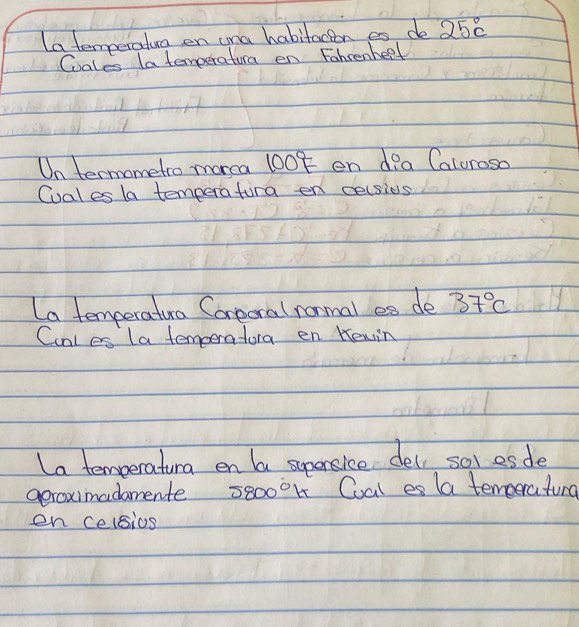 La temperatura en una habitacion es de 25°c
Cual es la temperatura en Fahrenheit
Un termometro marca 100°F en dia Caluroso
Cual es la temperatura en celsius
La temperatura Corporal normal es de 37°C
Cual es la temperatura en Kelvin
La temperatura en la superficie del sol es de
aproximadamente 5800°k Cual es la temperatura
en celsius